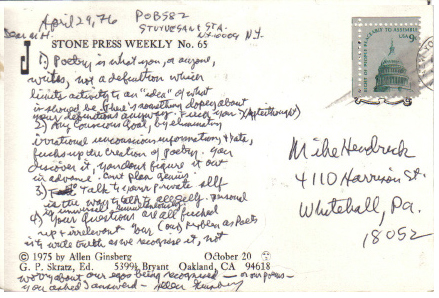 April 29, 76
POB 582
STUYVESANT STA.
NY 10009 N.Y.
Dear M H.
STONE PRESS WEEKLY No. 65
1) Poetry is what you, or anyone,
writes, not a definition which
limits activity to an "idea" of what
it should be. There's something dopey about
your definitions anyway. Fuck you (Afterthought)
2) Any Conscious Goal, by eliminating
irrational unconscious information & data,
fucks up the creation of poetry. You
discover it, you don't figure it out
in advance. Can't plan genius.
3) Talk to your private self
is the way to talk to all self. Personal
is universal, simultaneously.
4) Your Questions are all fucked
up & irrelevant. Your (our) problem as Poets
is to write truth as we recognize it, not
worry about our egos being recognized — or our poems —
you asked I answered — Allen Ginsberg
© 1975 by Allen Ginsberg October 20
G. P. Skratz, Ed. 5399½ Bryant Oakland, CA 94618
RIGHT OF PEOPLE PEACEABLY TO ASSEMBLE
USA 9c
Mike Hendrick
4110 Harrison St.
Whitehall, Pa.
18052